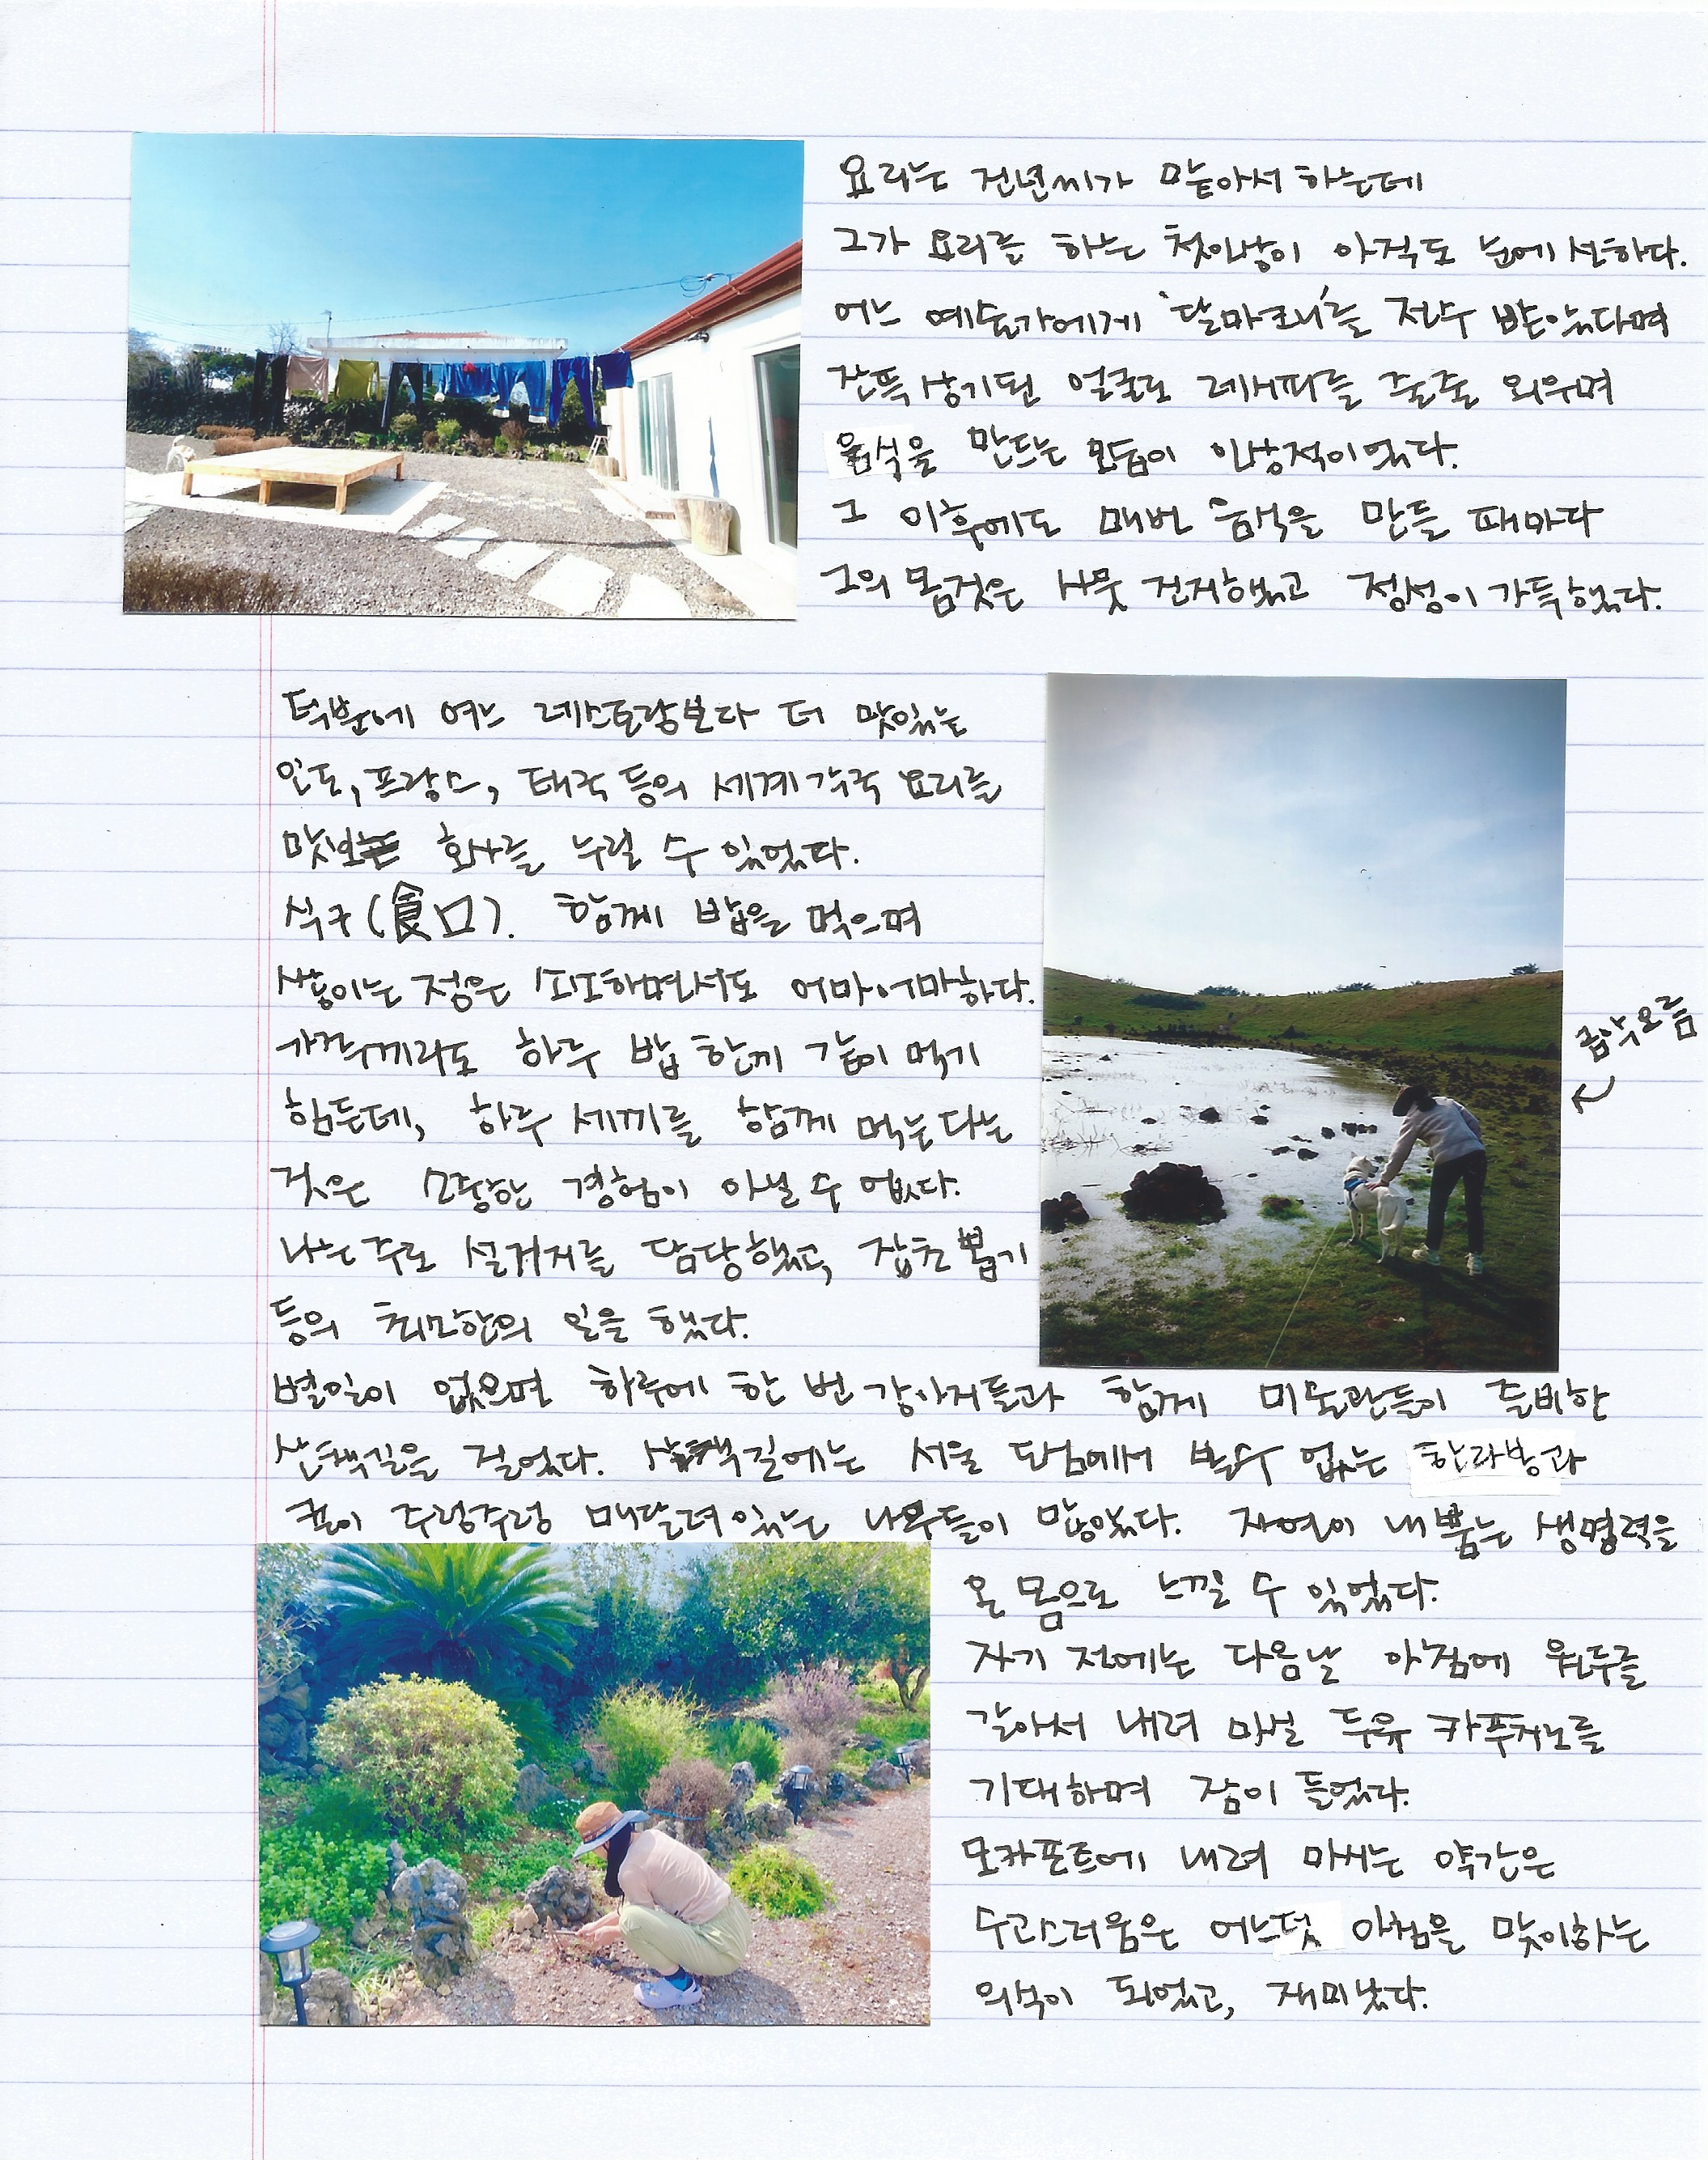 요리는 건년씨가 맡아서 하는데
그가 요리를 하는 첫인상이 아직도 눈에 선하다.
어느 예술가에게 '달마크니'를 전수 받았다며
잔뜩 상기된 얼굴로 레시피를 줄줄 외우며
음식을 만드는 모습이 인상적이었다.
그 이후에도 매번 음식을 만들 때마다
그의 몸짓은 사뭇 진지했고 정성이 가득했다.
덕분에 여느 레스토랑보다 더 맛있는
인도, 프랑스, 태국 등의 세계각국 요리를
맛보는 호사를 누릴 수 있었다.
식구(食口). 함께 밥을 먹으며
쌓이는 정은 소소하면서도 어마어마하다.
가족끼리도 하루 밥 한끼 같이 먹기
힘든데, 하루 세끼를 함께 먹는다는
것은 소중한 경험이 아닐 수 없다.
나는 주로 설거지를 담당했고, 잡초 뽑기
등의 최소한의 일을 했다.
별일이 없으면 하루에 한 번 강아지들과 함께 미술관들이 준비한
산책길을 걸었다. 산책길에는 서울 도심에서 볼수 없는 한라봉과
귤이 주렁주렁 매달려있는 나무들이 많았다. 자연이 내뿜는 생명력을
온 몸으로 느낄 수 있었다.
자기 전에는 다음날 아침에 원두를
갈아서 내려 마실 두유 카푸치노를
기대하며 잠이 들었다.
모카포트에 내려 마시는 약간은
수고스러움은 어느덧 아침을 맞이하는
의식이 되었고, 재미났다.
금악오름